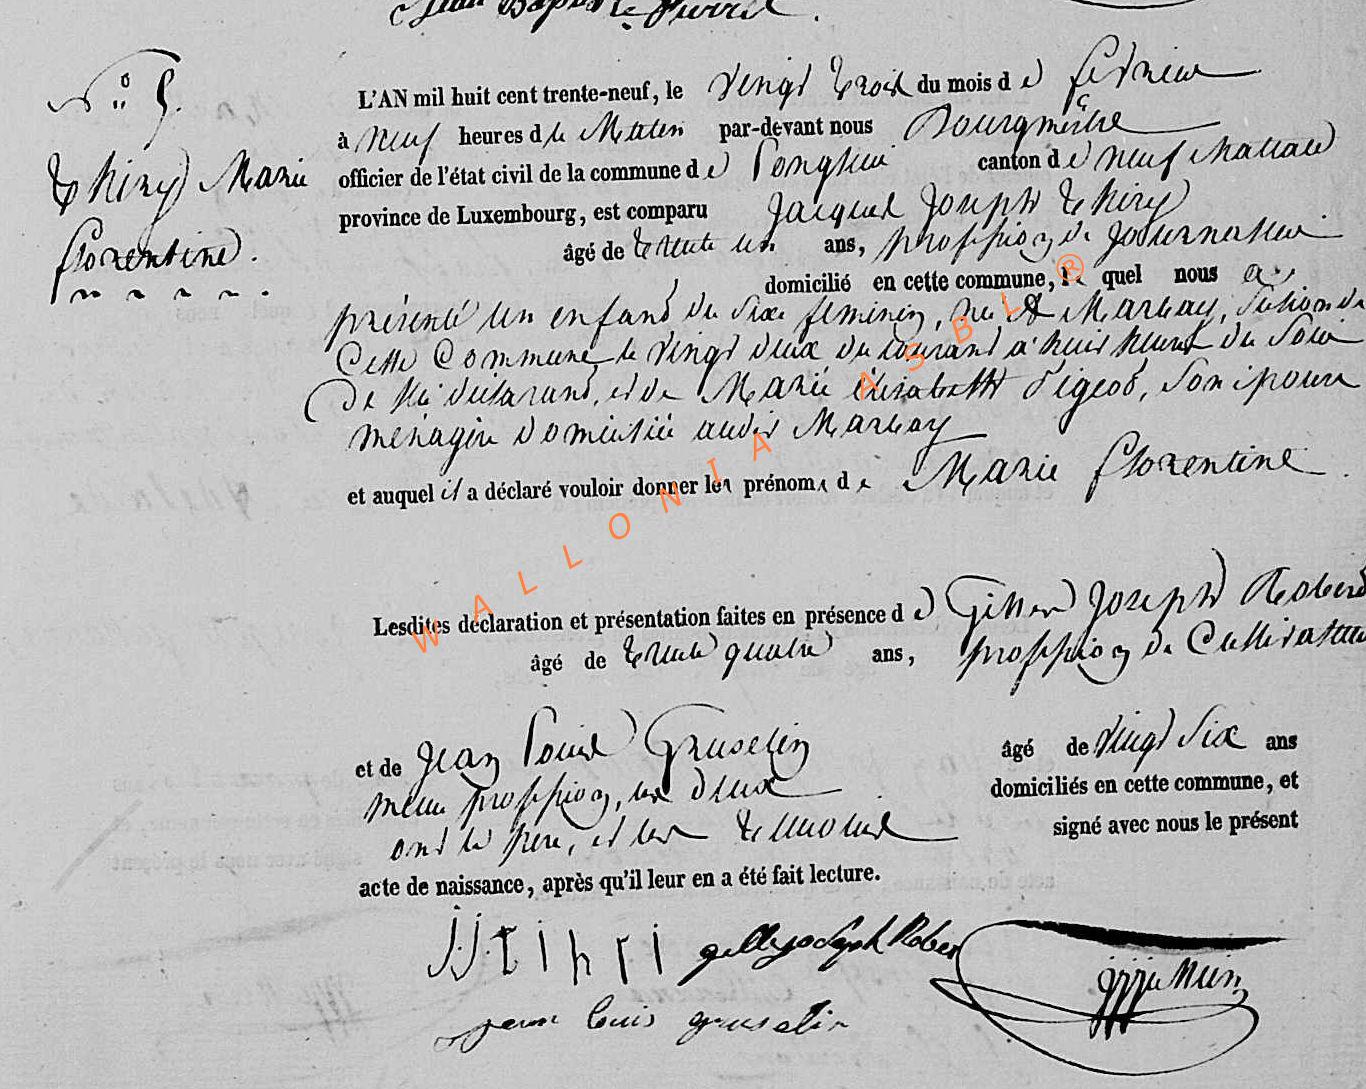 Jean Baptiste Pierret.
N° 5.
Thiry Marie
Florentine.
L'AN mil huit cent trente-neuf, le vingt trois du mois de fevrier
à neuf heures du Matin par-devant nous Bourgmestre
officier de l'état civil de la commune de Longlier canton de neufchateau
province de Luxembourg, est comparu Jacques Joseph Thiry
âgé de trente un ans, proffession de Journalier
domicilié en cette commune, lequel nous a
présenté un enfant du sixe feminin, née à Marbay, section de
Cette Commune le vingt deux du courant a huit heures du soir
De lui déclarant, et de Marie élisabeth Pigeot, son épouse
ménagère domiciliée audit Marbay
et auquel il a déclaré vouloir donner les prénoms de Marie florentine.
Lesdites déclaration et présentation faites en présence de Gilles Joseph Robert
âgé de trente quatre ans, proffession de Cultivateur
et de Jean Louis Gruselin âgé de vingt six ans
meme proffession, les deux domiciliés en cette commune, et
ont le père, et les temoins signé avec nous le présent
acte de naissance, après qu'il leur en a été fait lecture.
JJ tihri gilles joseph Robert
jean louis gruselin
WALLONIA ASBL ®